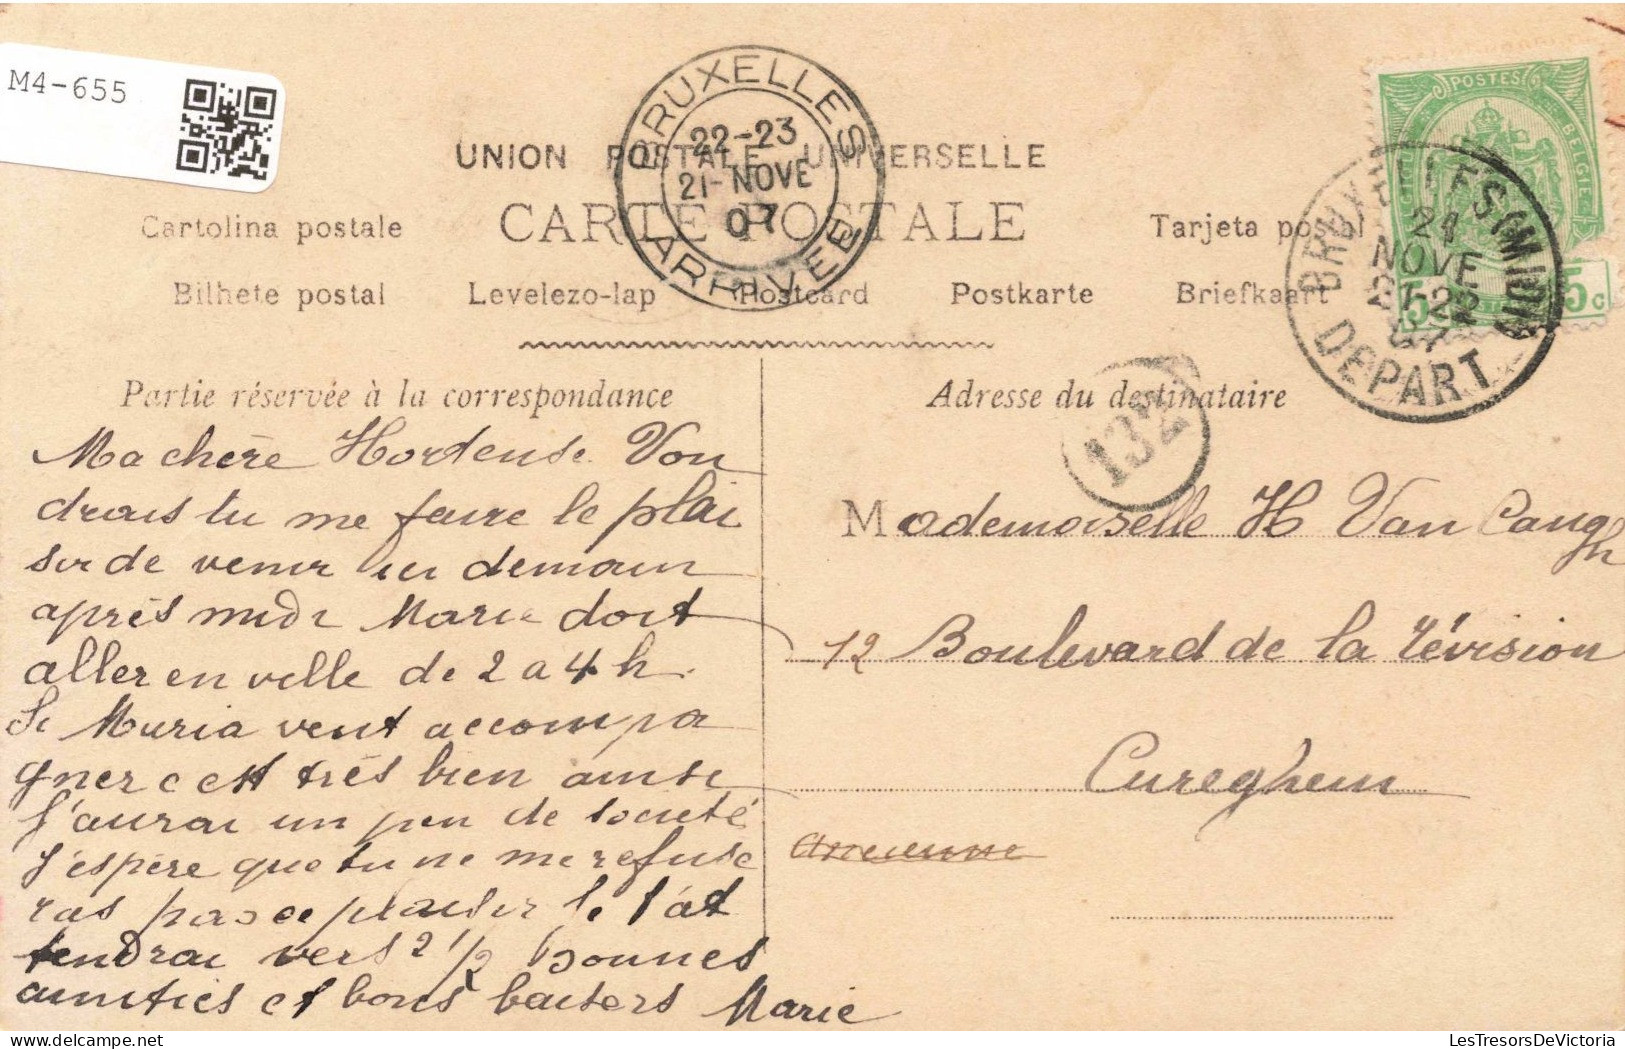 M4-655
UNION POSTALE UNIVERSELLE
CARTE POSTALE
Cartolina postale
Tarjeta postal
Bilhete postal
Levelezo-lap
Postcard
Postkarte
Briefkaart
BRUXELLES
22-23
21-NOVE
07
ARRIVEE
POSTES
BELGIQUE
BELGIE
5
5c
BRUXELLES (MIDI)
21
NOVE
21-22
07
DEPART
132
Partie réservée à la correspondance
Ma chère Hortense. Vou
drais tu me faire le plai
sir de venir ici demain
après midi Marie doit
aller en ville de 2 a 4 h.
Si Maria veut accompa
gner c est très bien ainsi
j'aurai un peu de société
J'espère que tu ne me refuse
ras pas ce plaisir je t'at
tendrai vers 2 1/2 bonnes
amitiés et bons baisers Marie
Adresse du destinataire
Mademoiselle H Van Caugh
12 Boulevard de la révision
Cureghem
LesTresorsDeVictoria